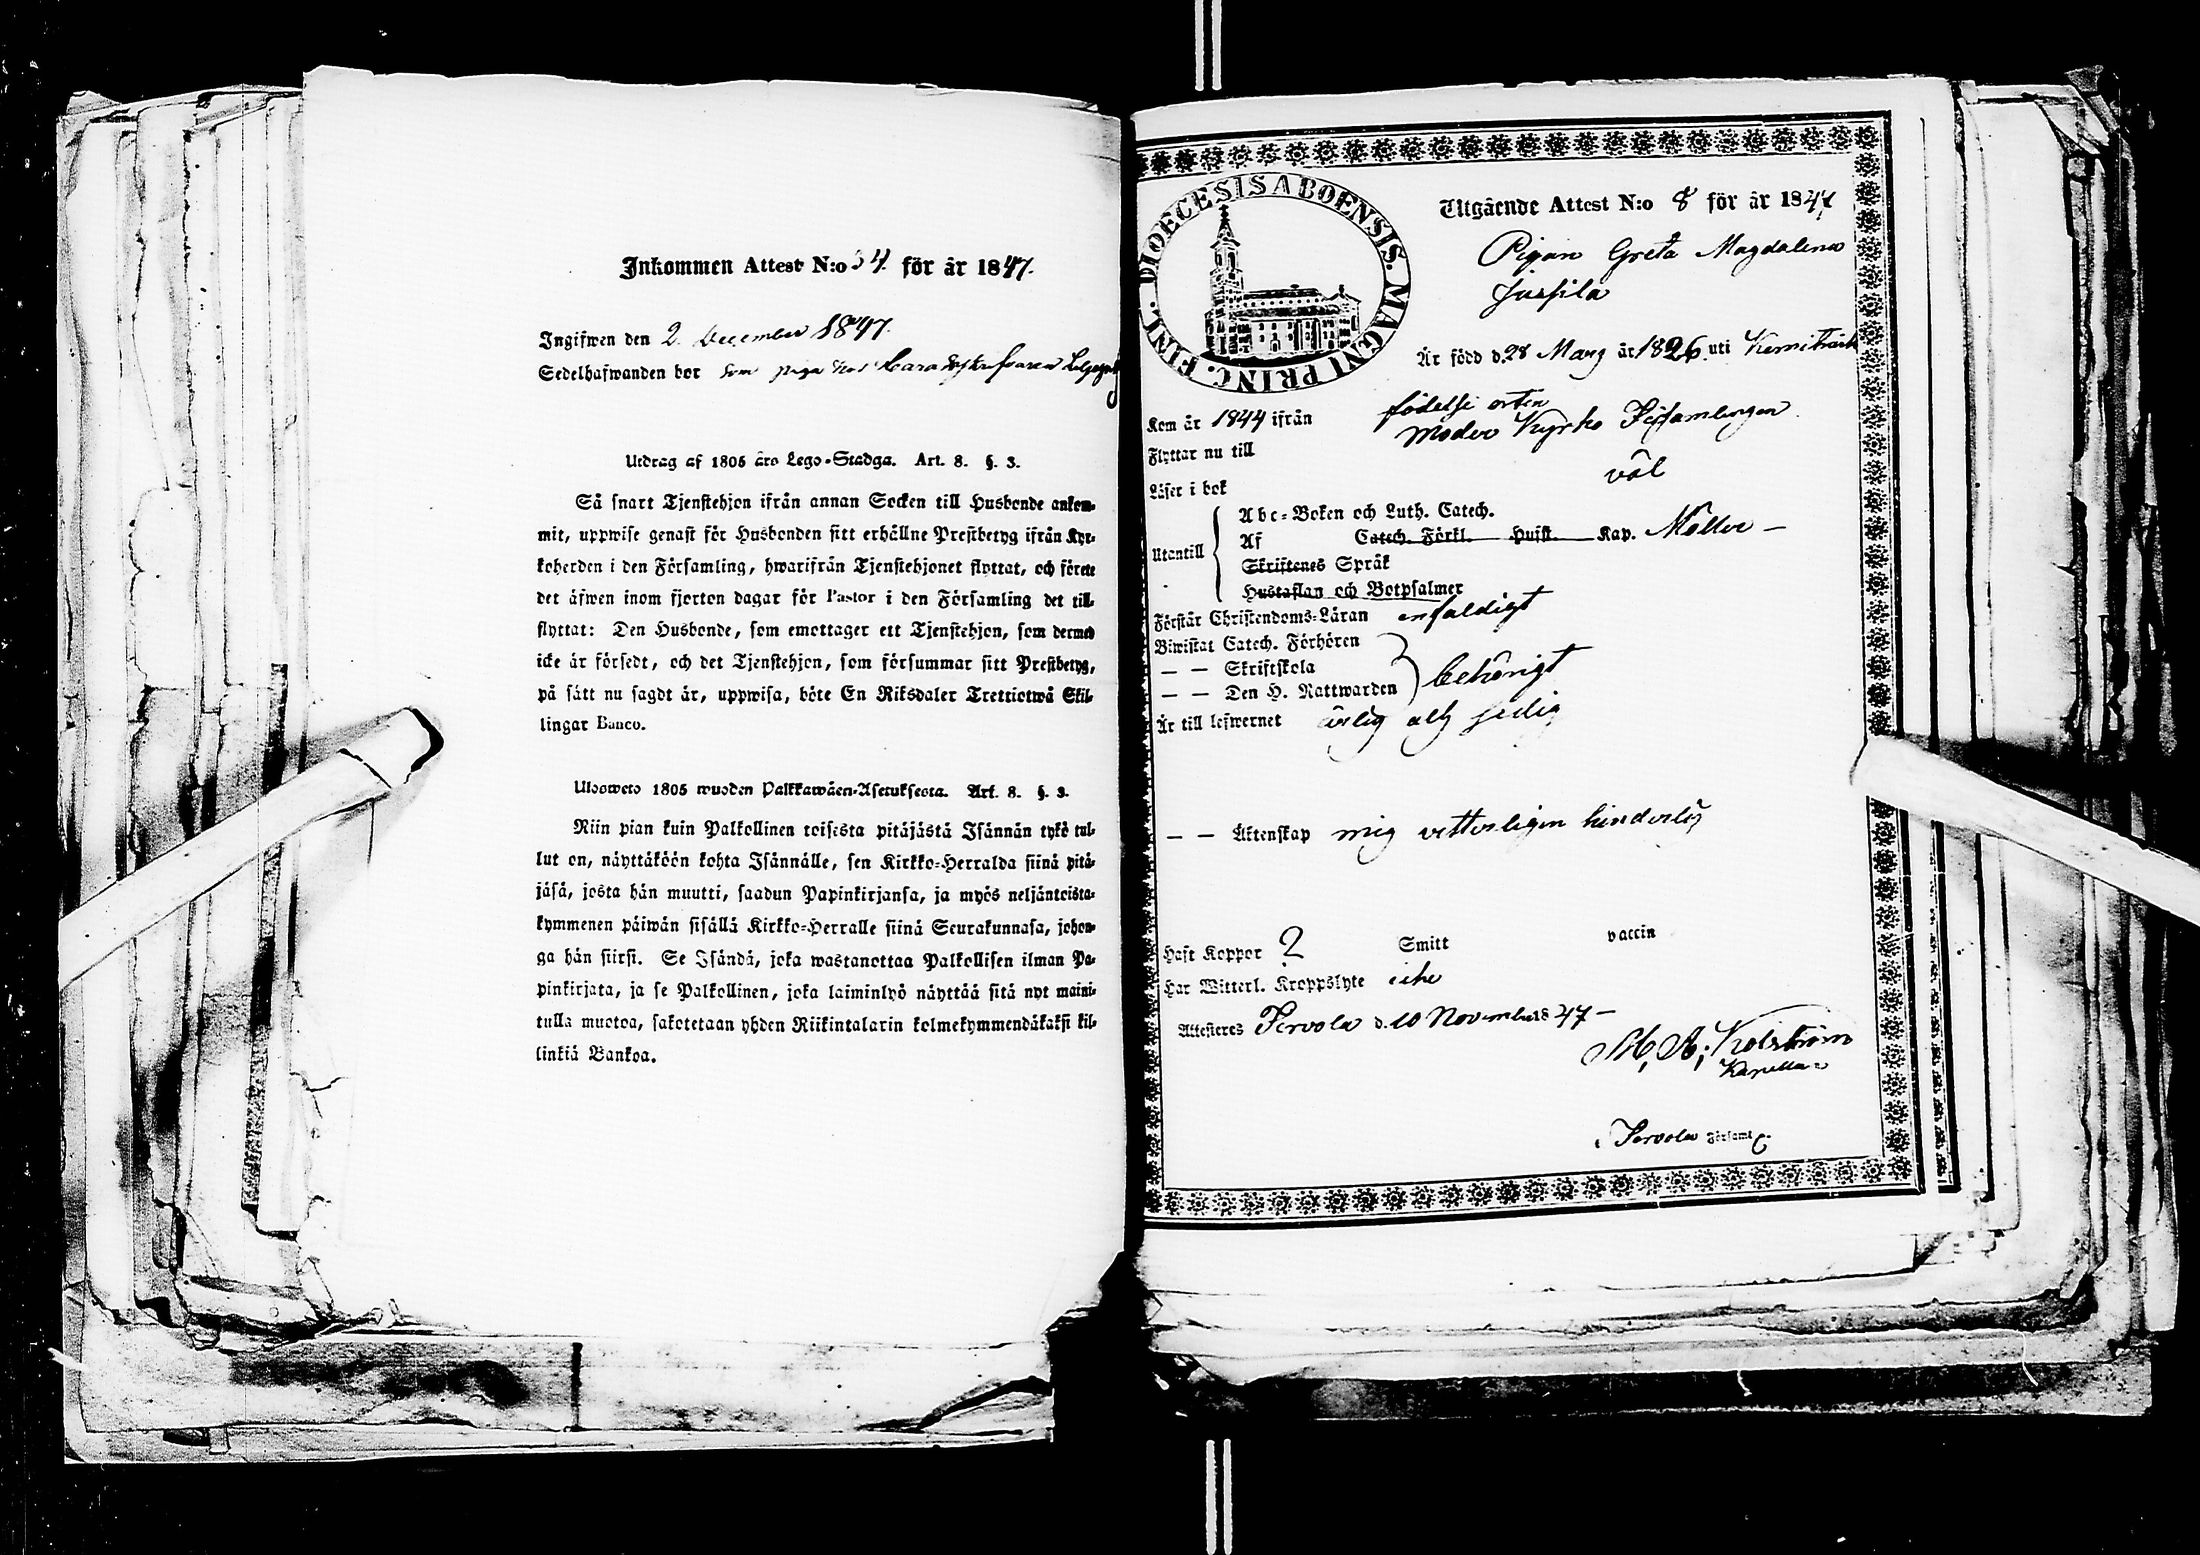 Inkommen Attest N:o 34. för år 1847.
Ingifwen den 2 December 1847.
Sedelhafwanden bor som piga hos
Utdrag af 1805 års Lego-Stadga. Art. 8. §. 3.
Så snart Tjenstehjon ifrån annan Socken till Husbonde ankom-
mit, uppwise genast för Husbonden sitt erhållne Prestbetyg ifrån Kyr-
koherden i den Församling, hwarifrån Tjenstehjonet flyttat, och förete
det äfwen inom fjorton dagar för Pastor i den Församling det till-
flyttat: Den Husbonde, som emottager ett Tjenstehjon, som dermed
icke är försedt, och det Tjenstehjon, som försummar sitt Prestbetyg,
på sätt nu sagdt är, uppwisa, böte En Riksdaler Trettiotwå Skil-
lingar Banco.
Ulosweto 1805 wuoden Palkkawäen-Asetuksesta. Art. 8. §. 3.
Niin pian kuin Palkollinen toisesta pitäjästä Isännän tykö tul-
lut on, näyttäköön kohta Isännälle, sen Kirkko-Herralda siinä pitä-
jäsä, josta hän muutti, saadun Papinkirjansa, ja myös neljäntoista-
kymmenen päiwän sisällä Kirkko-Herralle siinä Seurakunnasa, johon-
ga hän siirsi. Se Isändä, joka wastanottaa Palkollisen ilman Pa-
pinkirjata, ja se Palkollinen, joka laiminlyö näyttää sitä nyt maini-
tulla muotoa, sakotetaan yhden Riikintalarin kolmekymmendäkaksi kil-
linkiä Bankoa.
DIOECESIS ABOENSIS. MAGNI PRINC. FINL.
Utgående Attest N:o 8 för år 1847
Pigan Greta Magdalena
Juspila
Är född d. 28 Mars år 1826 uti Kemiträsk
Kom år 1844 ifrån födelse orten
Flyttar nu till Moder Kyrko Församlingen.
Läser i bok väl
Utantill
Abc-Boken och Luth. Catech.
Af Catech. Förkl. Hufst. Kap. Möller —
Skriftenes Språk
Hustaflan och Botpsalmer
Förstår Christendoms-Läran enfaldigt
Biwistat Catech. Förhören
— — Skriftskola
— — Den H. Nattwarden behörigt
Är till lefwernet ärlig och sedig
— — Äktenskap mig vetterligen hinderlös
Haft Koppor ? Smitt vaccin
Har Witterl. Kroppslyte icke
Attesteres Tervola d. 10 November 1847 —
M. A. Kolström
Kapellan
i Tervola Församl.